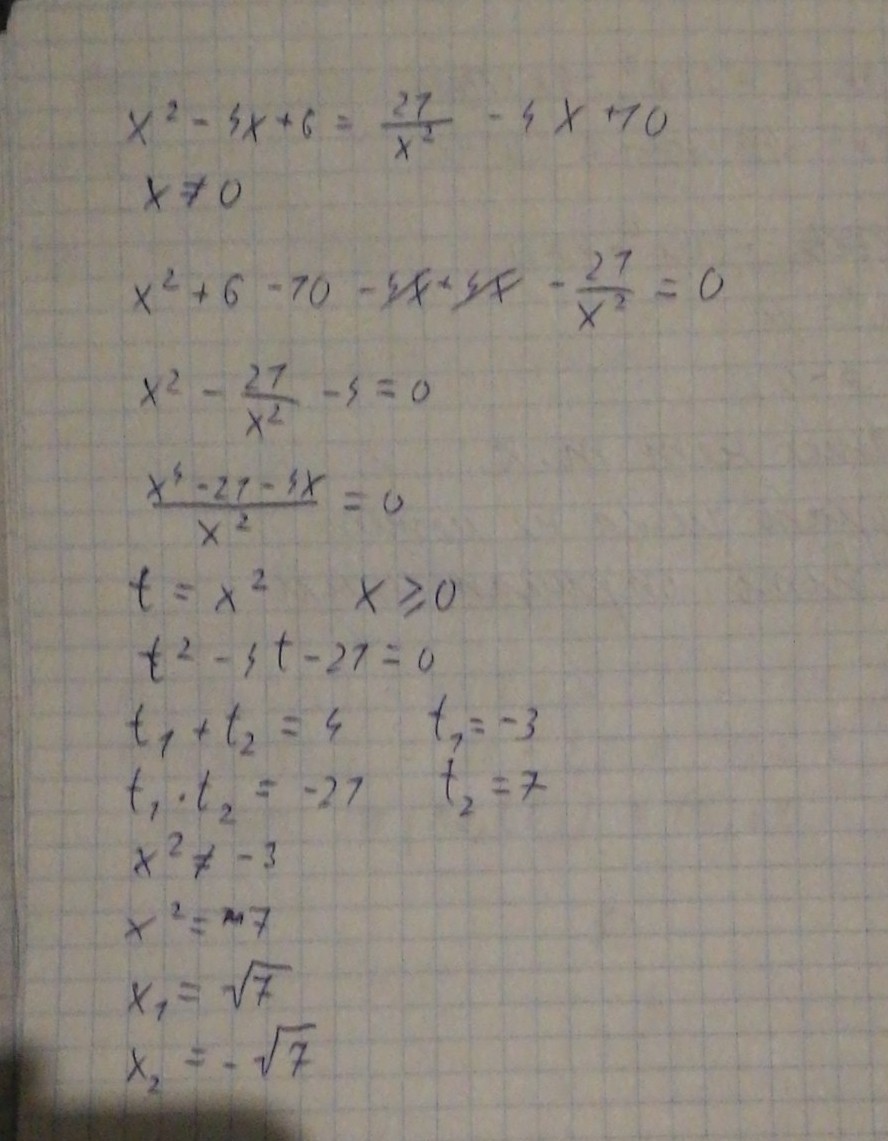 x² - 4x + 6 = 21/x² - 4x + 10
x ≠ 0
x² + 6 - 10 - 4x + 4x - 21/x² = 0
x² - 21/x² - 4 = 0
(x⁴ - 21 - 4x)/x² = 0
t = x² x ⩾ 0
t² - 4t - 21 = 0
t₁ + t₂ = 4 t₁ = -3
t₁ · t₂ = -21 t₂ = 7
x² ≠ -3
x² = 7
x₁ = √7
x₂ = -√7